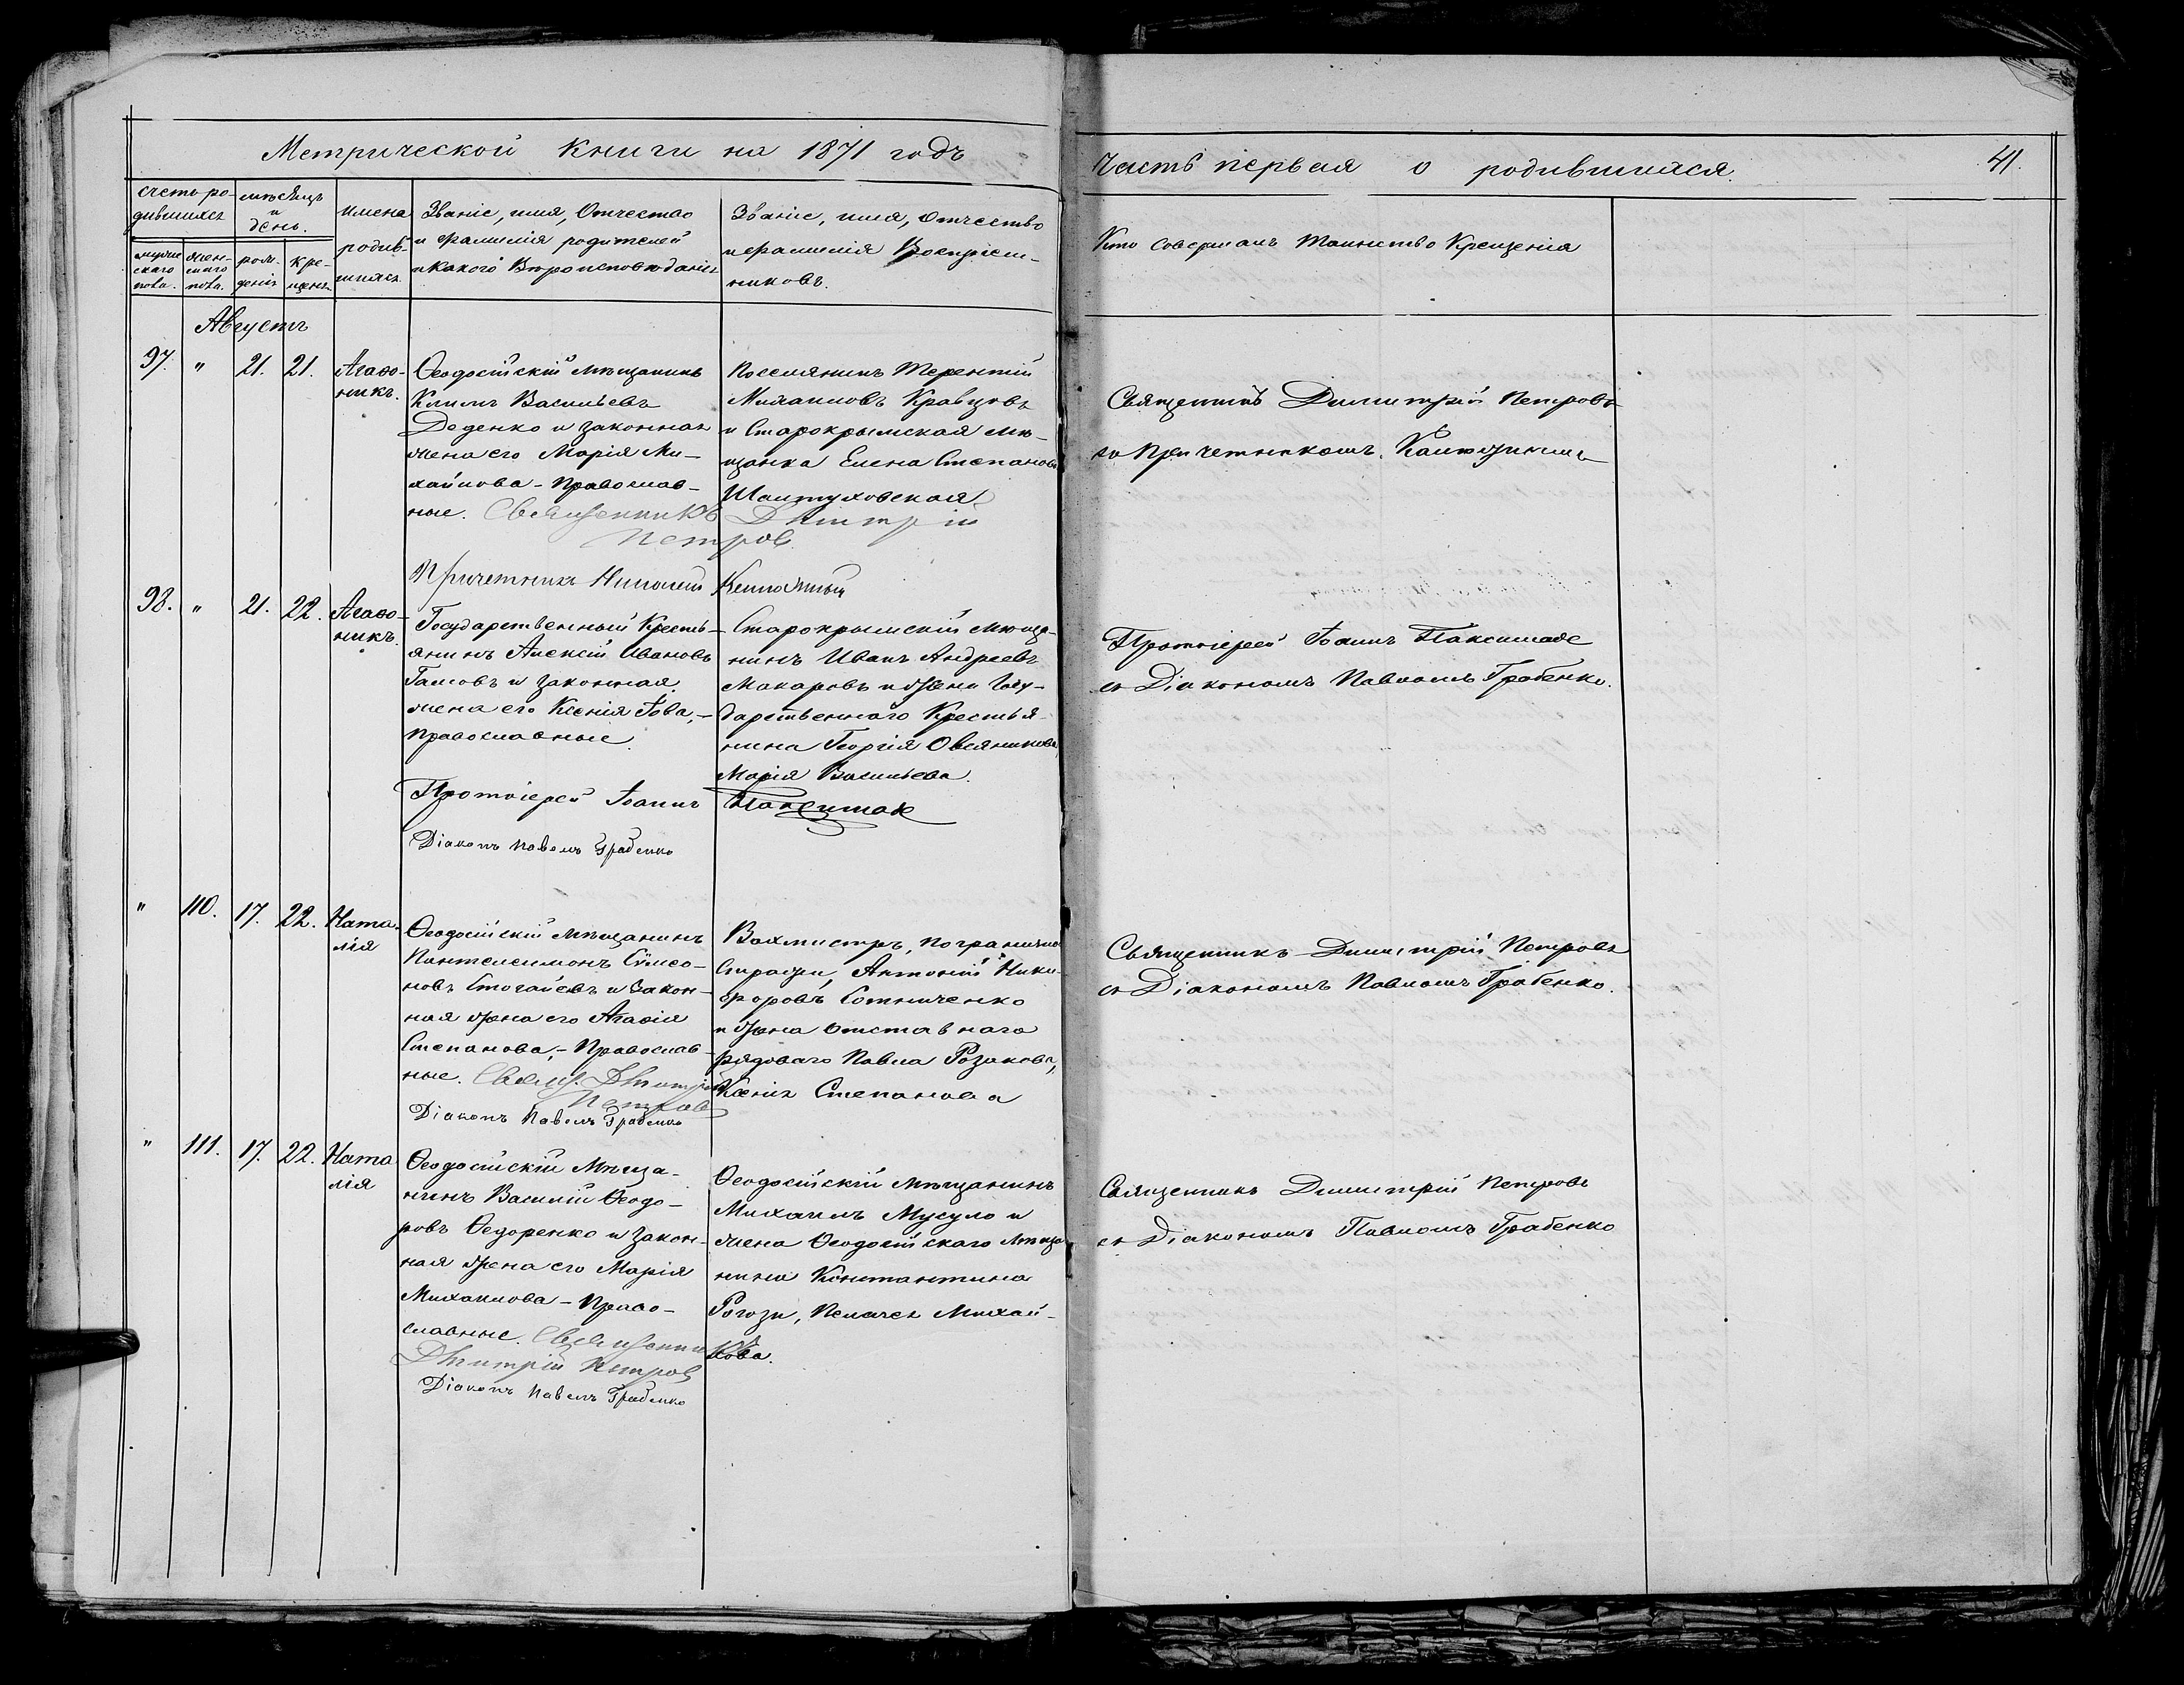 Метрической Книги на 1871 годъ
Часть первая о родившихся.
41.
счетъ ро-
дившихся
мѣсяцъ
и
день.
мужес
скаго
пола.
жен-
скаго
пола.
рож-
денія
кре-
щенія
имена
родив-
шихся.
Званіе, имя, Отчество
и фамилія родителей
и какого Вѣроисповѣданія
Званіе, имя, отчество
и фамилія Воспріем-
никовъ.
Кто совершалъ Таинство Крещенія
Августъ
97. " 21. 21. Агаѳо-
никъ.
Ѳеодосійскій Мѣщанинъ
Климъ Васильевъ
Деденко и законная
жена его Марія Ми-
хайлова - Православ-
ные. Священникъ Дмитрій
Петров
Причетникъ Николай
Поселянинъ Терентій
Михаиловъ Кравцовъ
и Старокрымская мѣ-
щанка Елена Степанова
Священникъ Димитрій Петровъ
съ Причетникомъ
98. " 21. 22. Агаѳо-
никъ.
Государственный Кресть-
янинъ Алексій Ивановъ
Гамовъ и законная
жена его Ксенія Іова, -
православные.
Протоіерей Іоаннъ
Діаконъ Павелъ Грабенко
Старокрымскій мѣща-
нинъ Иванъ Андреевъ
Макаровъ и жена Госу-
дарственнаго Крестья-
нина Георгія Овсяникова,
Марія Васильева.
Протоіерей Іоаннъ
съ Діакономъ Павломъ Грабенко.
" 110. 17. 22. Ната-
лія
Ѳеодосійскій Мѣщанинъ
Пантелеимонъ Сѵмео-
новъ и Закон-
ная жена его Агаѳія
Степанова, - Православ-
ные. Священ. Дмитрій
Петров
Діаконъ Павелъ Грабенко
Вахмистръ, пограничной
Стражи, Антоній Ники-
форовъ Сотниченко
и жена отставнаго
рядоваго Павла Розакова,
Ксенія Степанова
Священникъ Димитрій Петровъ
съ Діакономъ Павломъ Грабенко.
" 111. 17. 22. Ната
лія
Ѳеодосійскій Мѣща-
нинъ Василій Ѳеодо-
ровъ Ѳедоренко и закон-
ная жена его Марія
Михаилова - Право-
славные. Священник
Дмитрій Петров
Діаконъ Павелъ Грабенко
Ѳеодосійскій мѣщанинъ
Михаилъ Мусуло и
жена Ѳеодосійскаго Мѣща
нина Константина
Рогози, Пелагея Михай-
лова.
Священникъ Димитрій Петровъ
съ Діакономъ Павломъ Грабенко